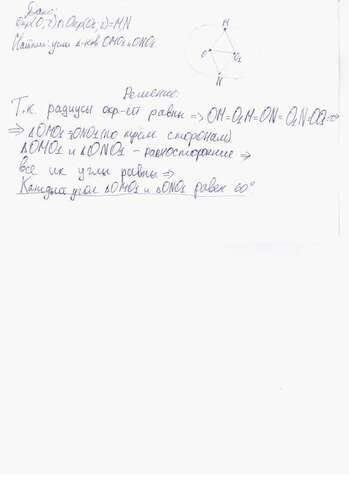 Дано:
Окр(O,r)∩Окр(O₁,r)=M,N
Найти: углы Δ-ков OMO₁ и ONO₁
M
O
O₁
N
Решение:
Т.к. радиусы окр-ей равны => OM=O₁M=ON=O₁N=OO₁=>
=> ΔOMO₁=ONO₁(по трём сторонам)
ΔOMO₁ и ΔONO₁ - равносторонние =>
все их углы равны =>
Каждый угол ΔOMO₁ и ΔONO₁ равен 60°